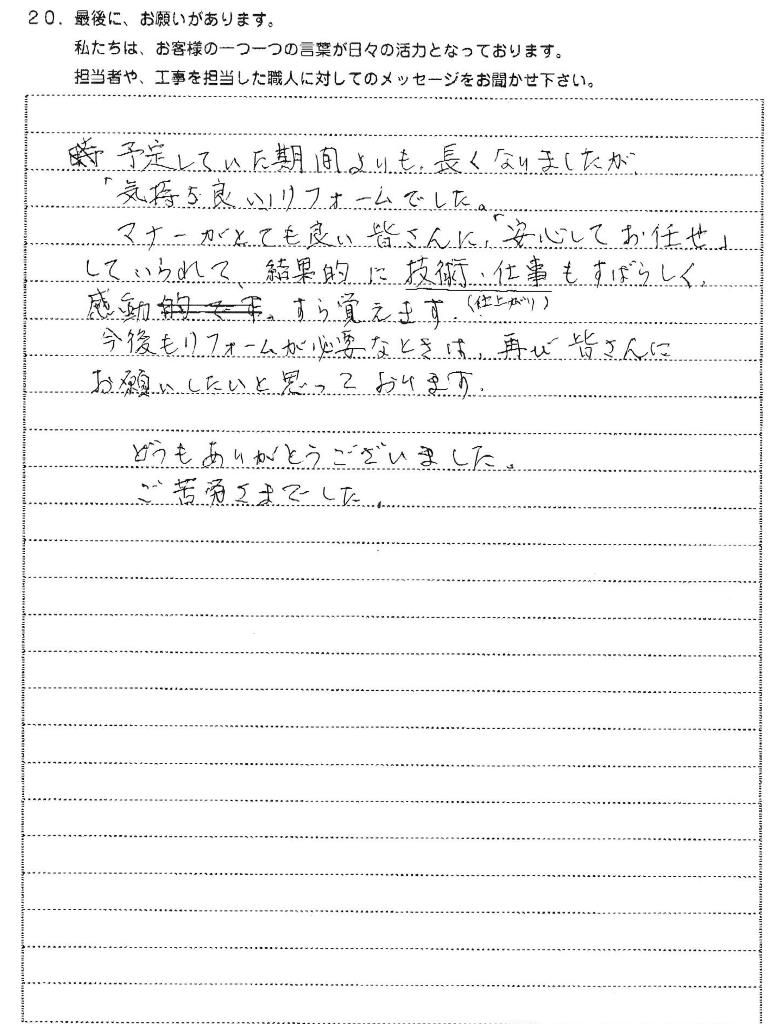 20．最後に、お願いがあります。
私たちは、お客様の一つ一つの言葉が日々の活力となっております。
担当者や、工事を担当した職人に対してのメッセージをお聞かせ下さい。
予定していた期間よりも、長くなりましたが、
「気持ち良い」リフォームでした。
マナーがとても良い皆さんに、「安心してお任せ」
していられて、結果的に技術・仕事もすばらしく、
(仕上がり)
感動的です。すら覚えます。
今後もリフォームが必要なときは、再び皆さんに
お願いしたいと思っております。
どうもありがとうございました。
ご苦労さまでした。